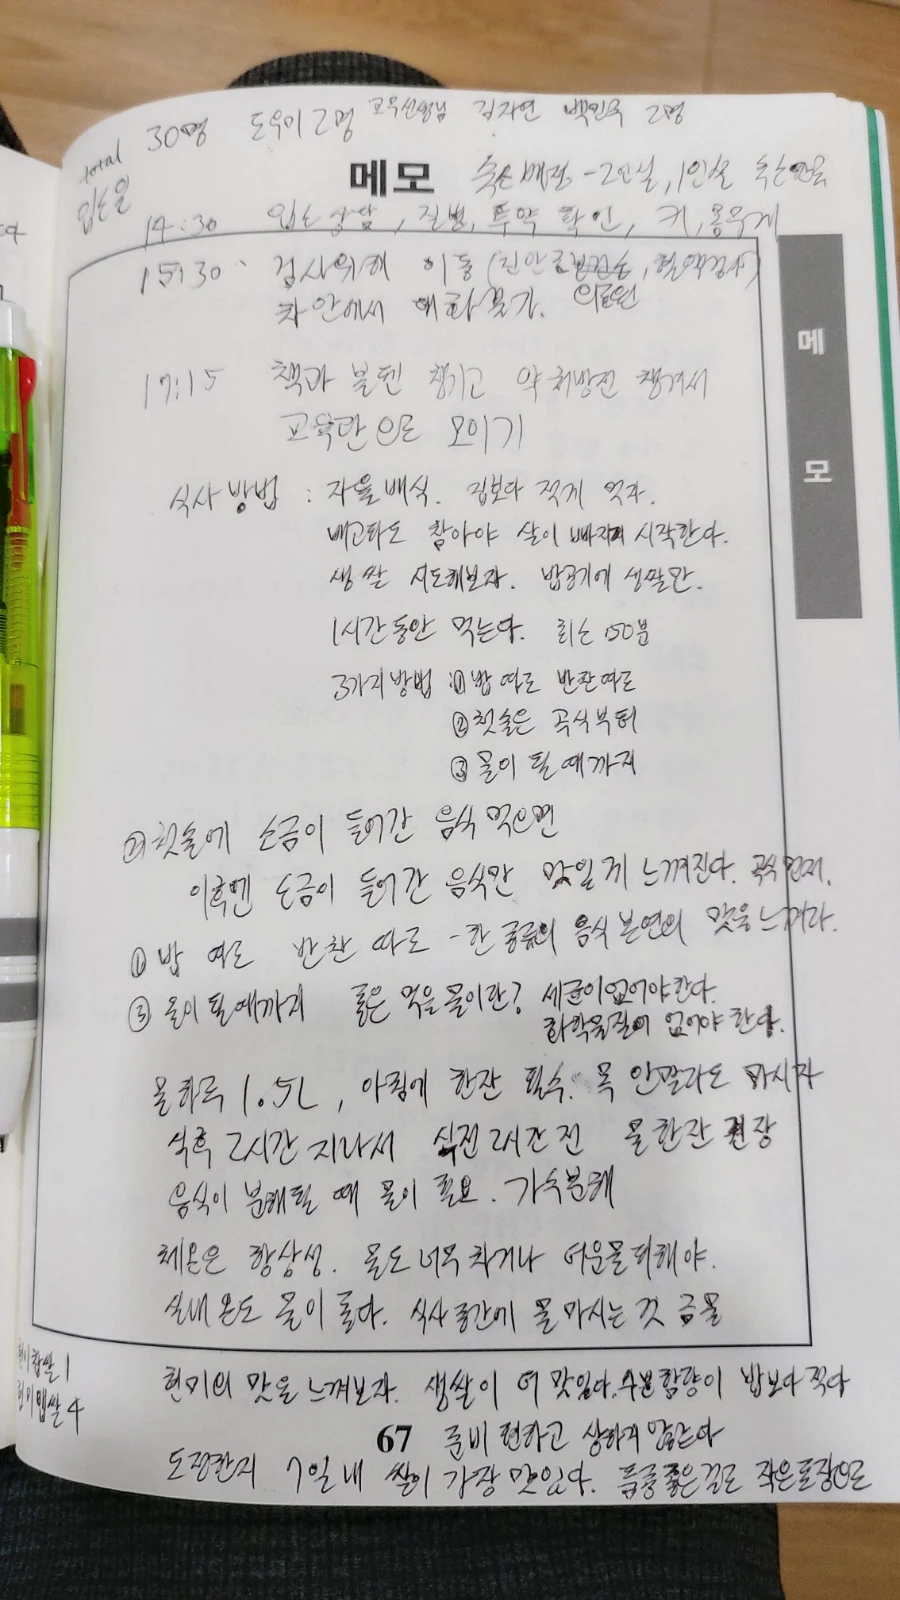 total 30명 도우미 2명 교육선생님 김자연 백민욱 2명
메모
숙소배정 - 2인실, 1인실 추후
입소일
14:30 입소상담, 질병, 투약 확인, 키, 몸무게
15:30 검사위해 이동 (진안 혈액검사)
의료원
차안에서 대화불가.
17:15 책과 볼펜 챙기고 약 처방전 챙겨서
교육관으로 모이기
식사방법 : 자율배식. 집보다 적게 먹자.
배고파도 참아야 살이 빠지기 시작한다.
생쌀 시도해보자. 밥공기에 생쌀만.
1시간동안 먹는다. 최소 50분
3가지방법 : ① 밥 따로 반찬따로
② 첫술은 곡식부터
③ 물이 될때까지
② 첫술에 소금이 들어간 음식 먹으면
이후엔 소금이 들어간 음식만 맛있게 느껴진다. 곡식먼저.
① 밥 따로 반찬 따로 - 한 종류의 음식 본연의 맛을 느껴라.
③ 물이 될때까지 좋은 먹을 물이란? 세균이없어야한다.
화학물질이 없어야 한다.
물하루 1.5L, 아침에 한잔 필수. 목 안말라도 마시자
식후 2시간 지나서 식전 2시간 전 물한잔 권장
음식이 분해될 때 물이 필요. 가수분해
체온은 항상성. 물도 너무 차거나 더운물피해야.
실내온도 물이 좋다. 식사 중간에 물 마시는 것 금물
현미찹쌀 1
현미멥쌀 4
현미의 맛을 느껴보자. 생쌀이 더 맛있다. 수분함량이 밥보다 적다
67
준비 편하고 상하지 않는다
도정한지 7일내 쌀이 가장 맛있다. 품종좋은걸로 작은포장으로
메
모